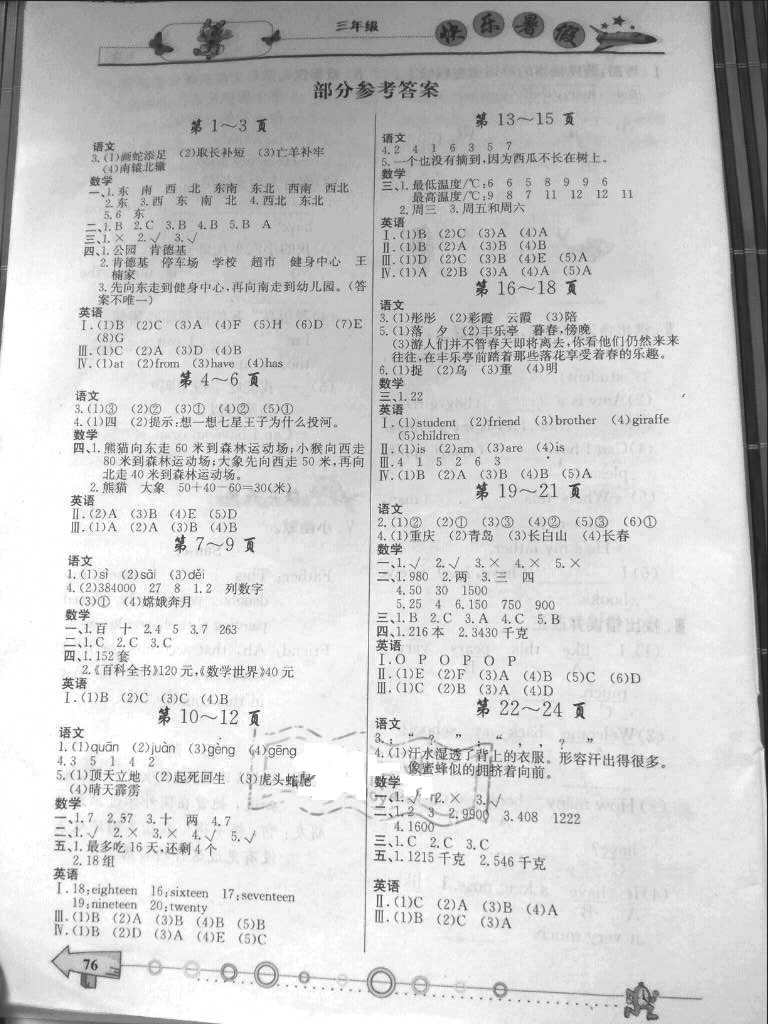 三年级
快乐暑假
部分参考答案
第1～3页
语文
3.(1)画蛇添足 (2)取长补短 (3)亡羊补牢
(4)南辕北辙
数学
一、1.东 南 西 北 东南 东北 西南 西北
2.东 3.西 东 南 北 4.西北 东北
5.6 东
二、1.B 2.C 3.B 4.B 5.B A
三、1.× 2.√ 3.√
四、1.公园 肯德基
2.肯德基 停车场 学校 超市 健身中心 王
楠家
3.先向东走到健身中心,再向南走到幼儿园。(答
案不唯一)
英语
Ⅰ.(1)B (2)C (3)A (4)F (5)H (6)D (7)E
(8)G
Ⅲ.(1)C (2)A (3)D (4)B
Ⅳ.(1)at (2)from (3)have (4)has
第4～6页
语文
3.(1)③ (2)② (3)① (4)② (5)①
4.(1)四 (2)提示:想一想七星王子为什么投河。
数学
四、1.熊猫向东走60米到森林运动场;小猴向西走
80米到森林运动场;大象先向西走50米,再向
北走40米到森林运动场。
2.熊猫 大象 50+40-60=30(米)
英语
Ⅱ.(2)A (3)B (4)E (5)D
Ⅲ.(1)A (2)A (3)B (4)B
第7～9页
语文
1.(1)sì (2)sāi (3)děi
4.(2)384000 27 8 1.2 列数字
(3)① (4)嫦娥奔月
数学
一、1.百 十 2.4 5 3.7 263
二、1.C 2.C 3.C
四、1.152套
2.《百科全书》120元,《数学世界》40元
英语
Ⅰ.(1)B (2)C (3)C (4)B
第10～12页
语文
1.(1)quān (2)juàn (3)gèng (4)gēng
4.3 5 1 4 2
5.(1)顶天立地 (2)起死回生 (3)虎头蛇尾
(4)晴天霹雳
数学
一、1.7 2.57 3.十 两 4.7
二、1.√ 2.× 3.× 4.√ 5.√
五、1.最多吃16天,还剩4个
2.18组
英语
Ⅰ.18;eighteen 16;sixteen 17;seventeen
19;nineteen 20;twenty
Ⅲ.(1)B (2)A (3)B (4)B (5)B
Ⅳ.(1)B (2)D (3)A (4)E (5)C
76
第13～15页
语文
4.2 4 1 6 3 5 7
5.一个也没有摘到,因为西瓜不长在树上。
数学
三、1.最低温度/℃:6 6 5 8 9 9 6
最高温度/℃:9 8 7 11 12 12 11
2.周三 3.周五和周六
英语
Ⅰ.(1)B (2)C (3)A (4)A
Ⅱ.(1)B (2)A (3)B (4)B
Ⅲ.(1)D (2)C (3)B (4)E (5)A
Ⅳ.(1)A (2)B (3)A (4)A (5)A
第16～18页
语文
3.(1)彤彤 (2)彩霞 云霞 (3)陪
5.(1)落 夕 (2)丰乐亭 暮春,傍晚
(3)游人们并不管春天即将离去,你看他们仍然来来
往往,在丰乐亭前踏着那些落花享受着春的乐趣。
6.(1)捉 (2)乌 (3)重 (4)明
数学
三、1.22
英语
Ⅰ.(1)student (2)friend (3)brother (4)giraffe
(5)children
Ⅱ.(1)is (2)am (3)are (4)is
Ⅲ.4 1 5 2 6 3
Ⅳ.(1)B (2)A (3)B (4)B (5)A
第19～21页
语文
2.(1)② (2)① (3)③ (4)② (5)③ (6)①
4.(1)重庆 (2)青岛 (3)长白山 (4)长春
数学
一、1.√ 2.√ 3.× 4.× 5.×
二、1.980 2.两 3.三 四
4.50 30 1500
5.25 4 6.150 750 900
三、1.B 2.C 3.A 4.C 5.B
四、1.216本 2.3430千克
英语
Ⅰ.O P O P O P
Ⅱ.(1)E (2)F (3)A (4)B (5)C (6)D
Ⅲ.(1)C (2)D (3)A (4)B
第22～24页
语文
3.:“ ? ”, “ , , , ”
4.(1)汗水湿透了背上的衣服。形容汗出得很多。
像蜜蜂似的拥挤着向前。
数学
一、1.√ 2.× 3.√
二、1.2 3 2.9900 3.408 1222
4.1600
三、1.C 2.C 3.C
五、1.1215千克 2.546千克
英语
Ⅱ.(1)C (2)A (3)B (4)A
Ⅲ.(1)B (2)C (3)A